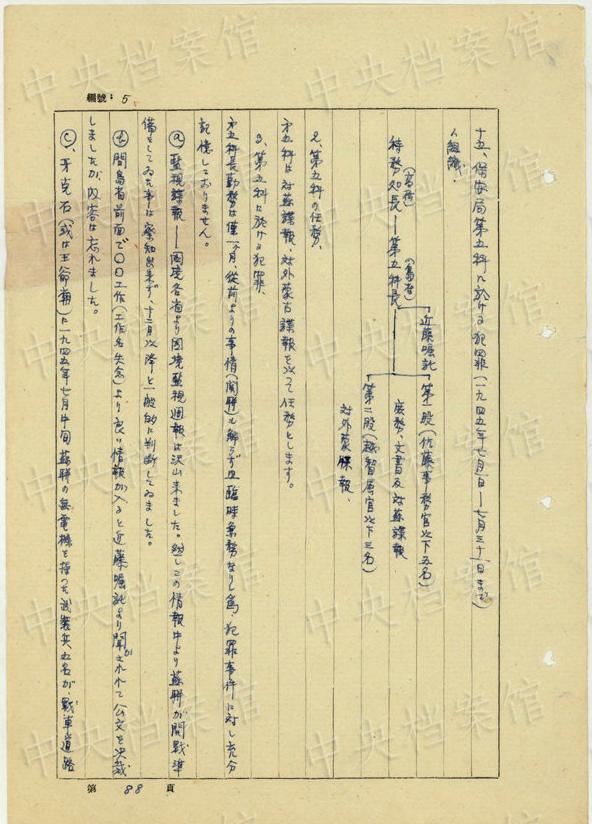 編號：5
十五、保安局第五科に於ける犯罪（一九四五年七月一日——七月三十一日まで）
1、組織．
特務処長——第五科長
近藤嘱託
第一股（佐藤事務官以下五名）
庶務、文書及対蘇諜報．
第二股（越智属官以下三名）
対外蒙諜報．
2、第五科の任務．
第五科は対蘇諜報、対外蒙古諜報を以って任務とします。
3、第五科に於ける犯罪
第五科長勤務は僅一ヶ月、従前よりの事情（関聯）も解らず且臨時業務なりし為、犯罪事件に対し充分
記憶しておりません。
ⓐ、監視諜報——国境各省より国境監視週報は沢山来ました。然しこの情報中より蘇聯が開戦準
備をしてゐた事は察知出来ず、十二月以降と一般的に判断してゐました。
ⓑ、間島省前面で〇〇工作（工作名失念）より良い情報が入ると近藤嘱託より聞かされて公文を決裁
しましたが、内容は忘れました。
ⓒ、牙克石（或は王爺廟）に一九四五年七月中旬蘇聯の無電機を持った武装兵五名が、戦車道路
第 88 頁
中央档案馆